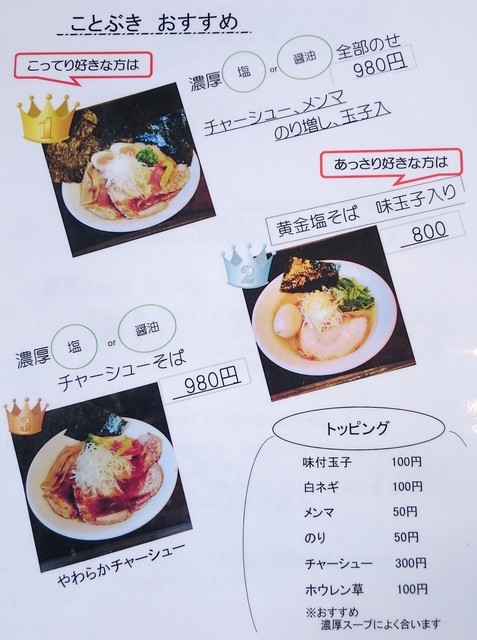 ことぶき おすすめ
こってり好きな方は
1
濃厚 塩 or 醤油 全部のせ
980円
チャーシュー、メンマ
のり増し、玉子入
あっさり好きな方は
2
黄金塩そば 味玉子入り
800
濃厚 塩 or 醤油
チャーシューそば
980円
3
やわらかチャーシュー
トッピング
味付玉子 100円
白ネギ 100円
メンマ 50円
のり 50円
チャーシュー 300円
ホウレン草 100円
※おすすめ
濃厚スープによく合います